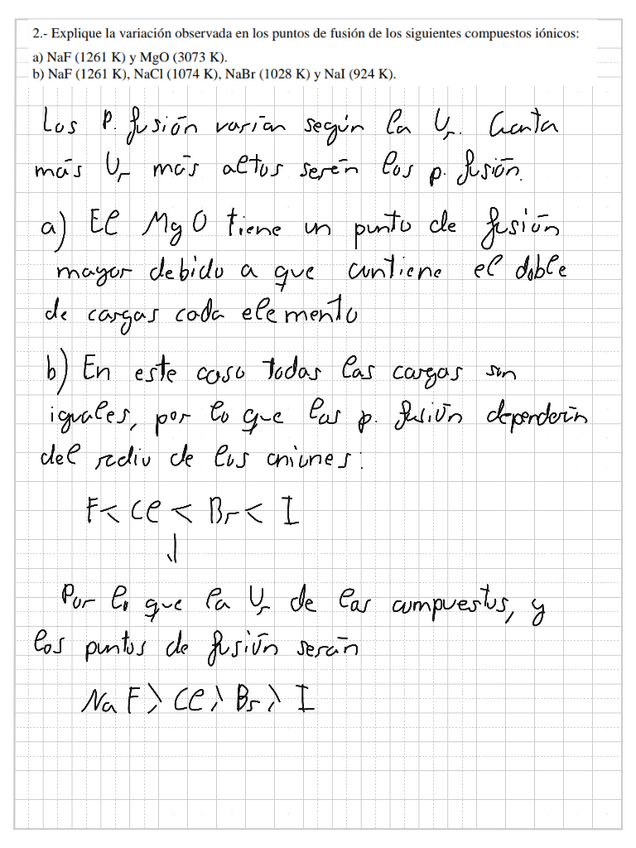 2.- Explique la variación observada en los puntos de fusión de los siguientes compuestos iónicos:
a) NaF (1261 K) y MgO (3073 K).
b) NaF (1261 K), NaCl (1074 K), NaBr (1028 K) y NaI (924 K).
Los P. fusión varían según la Ur. Cuanta
más Ur más altos serán los p. fusión.
a) El MgO tiene un punto de fusión
mayor debido a que contiene el doble
de cargas cada elemento
b) En este caso todas las cargas son
iguales, por lo que los p. fusión dependerán
del radio de los aniones:
F < Cl < Br < I
↓
Por lo que la Ur de los compuestos, y
los puntos de fusión serán
NaF > Cl > Br > I